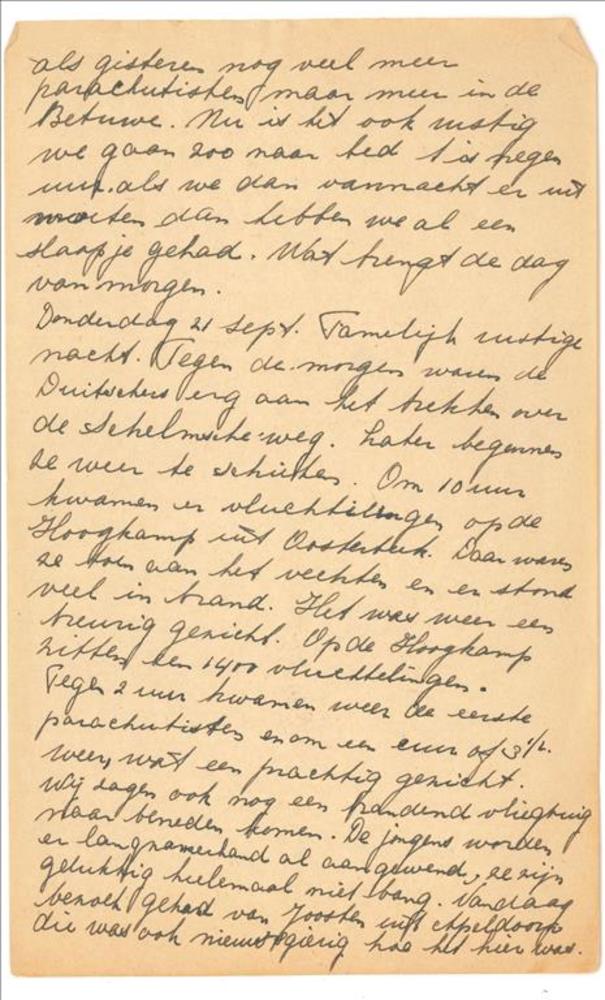 als gisteren nog veel meer
parachutisten maar meer in de
Betuwe. Nu is het ook rustig
we gaan zoo naar bed 't is negen
uur. als we dan vannacht er uit
moeten dan hebben we al een
slaapje gehad. Wat brengt de dag
van morgen.
Donderdag 21 Sept. Tamelijk rustige
nacht. Tegen de morgen waren de
Duitschers erg aan het trekken over
de Schelmsche-weg. Later begonnen
ze weer te schieten. Om 10 uur
kwamen er vluchtelingen op de
Hoogkamp uit Oosterbeek. Daar waren
ze toen aan het vechten en er stond
veel in brand. Het was weer een
treurig gezicht. Op de Hoogkamp
zitten een 1400 vluchtelingen.
Tegen 2 uur kwamen weer de eerste
parachutisten en om een uur of 3 1/2
weer, wat een prachtig gezicht.
Wij zagen ook nog een brandend vliegtuig
naar beneden komen. De jongens worden
er langzamerhand al aan gewend, ze zijn
gelukkig heelemaal niet bang. Vandaag
bezoek gehad van Joosten uit Apeldoorn
die was ook nieuwsgierig hoe het hier was.